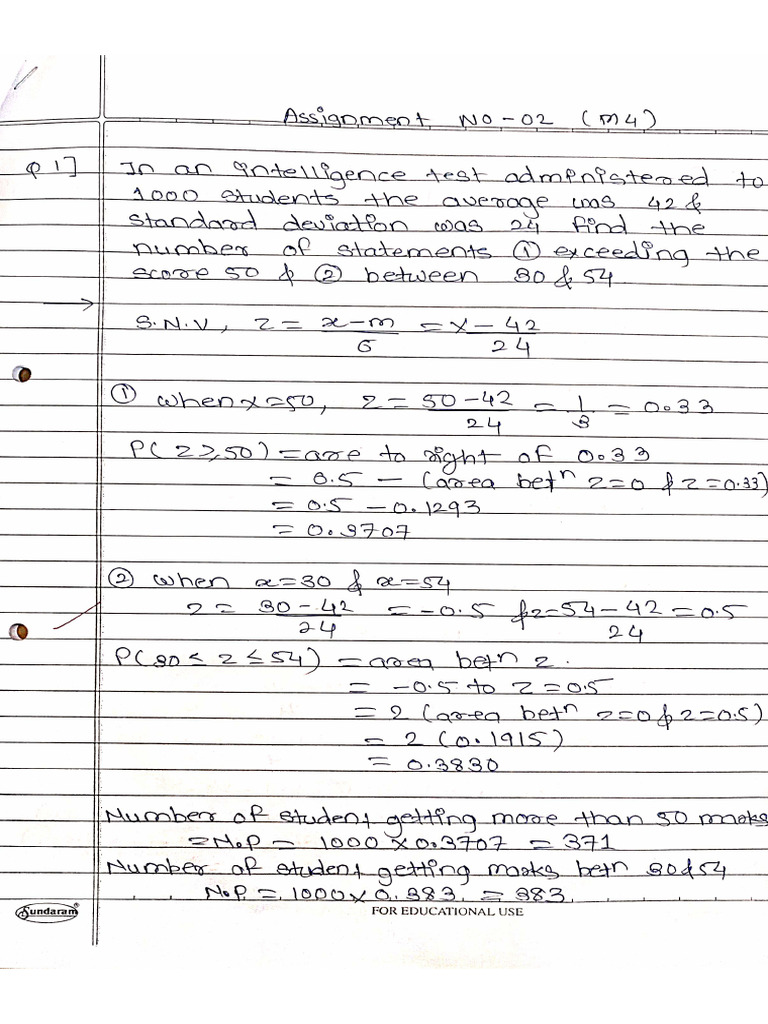 Assignment NO-02 (M4)
Q 1] In an intelligence test administered to
1000 students the average was 42 &
standard deviation was 24 find the
number of statements ① exceeding the
score 50 & ② between 30 & 54
→ S.N.V, z = x-m/6 = x-42/24
① when x=50, z = 50-42/24 = 1/3 = 0.33
P(z≥50) = are to right of 0.33
= 0.5 - (area betn z=0 & z=0.33)
= 0.5 - 0.1293
= 0.3707
② when x=30 & x=54
z = 30-42/24 = -0.5 & z=54-42/24 = 0.5
P(30≤ z ≤54) = area betn z.
= -0.5 to z=0.5
= 2 (area betn z=0 & z=0.5)
= 2 (0.1915)
= 0.3830
Number of student getting more than 50 marks
= N.P = 1000 x 0.3707 = 371
Number of student getting marks betn 30&54
N.P. = 1000 x 0.383 = 383
Sundaram® FOR EDUCATIONAL USE